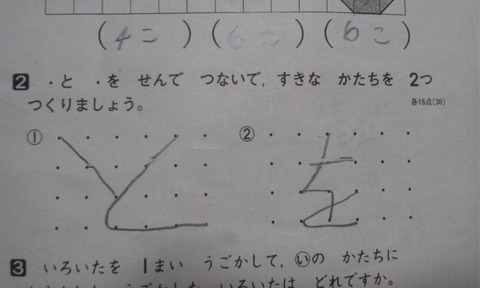 (4こ) (6こ) (6こ)
2 ・と ・を せんで つないで, すきな かたちを 2つ
つくりましょう。 各15点(30)
① ②
とを
3 いろいたを 1まい うごかして, ㋑の かたちに